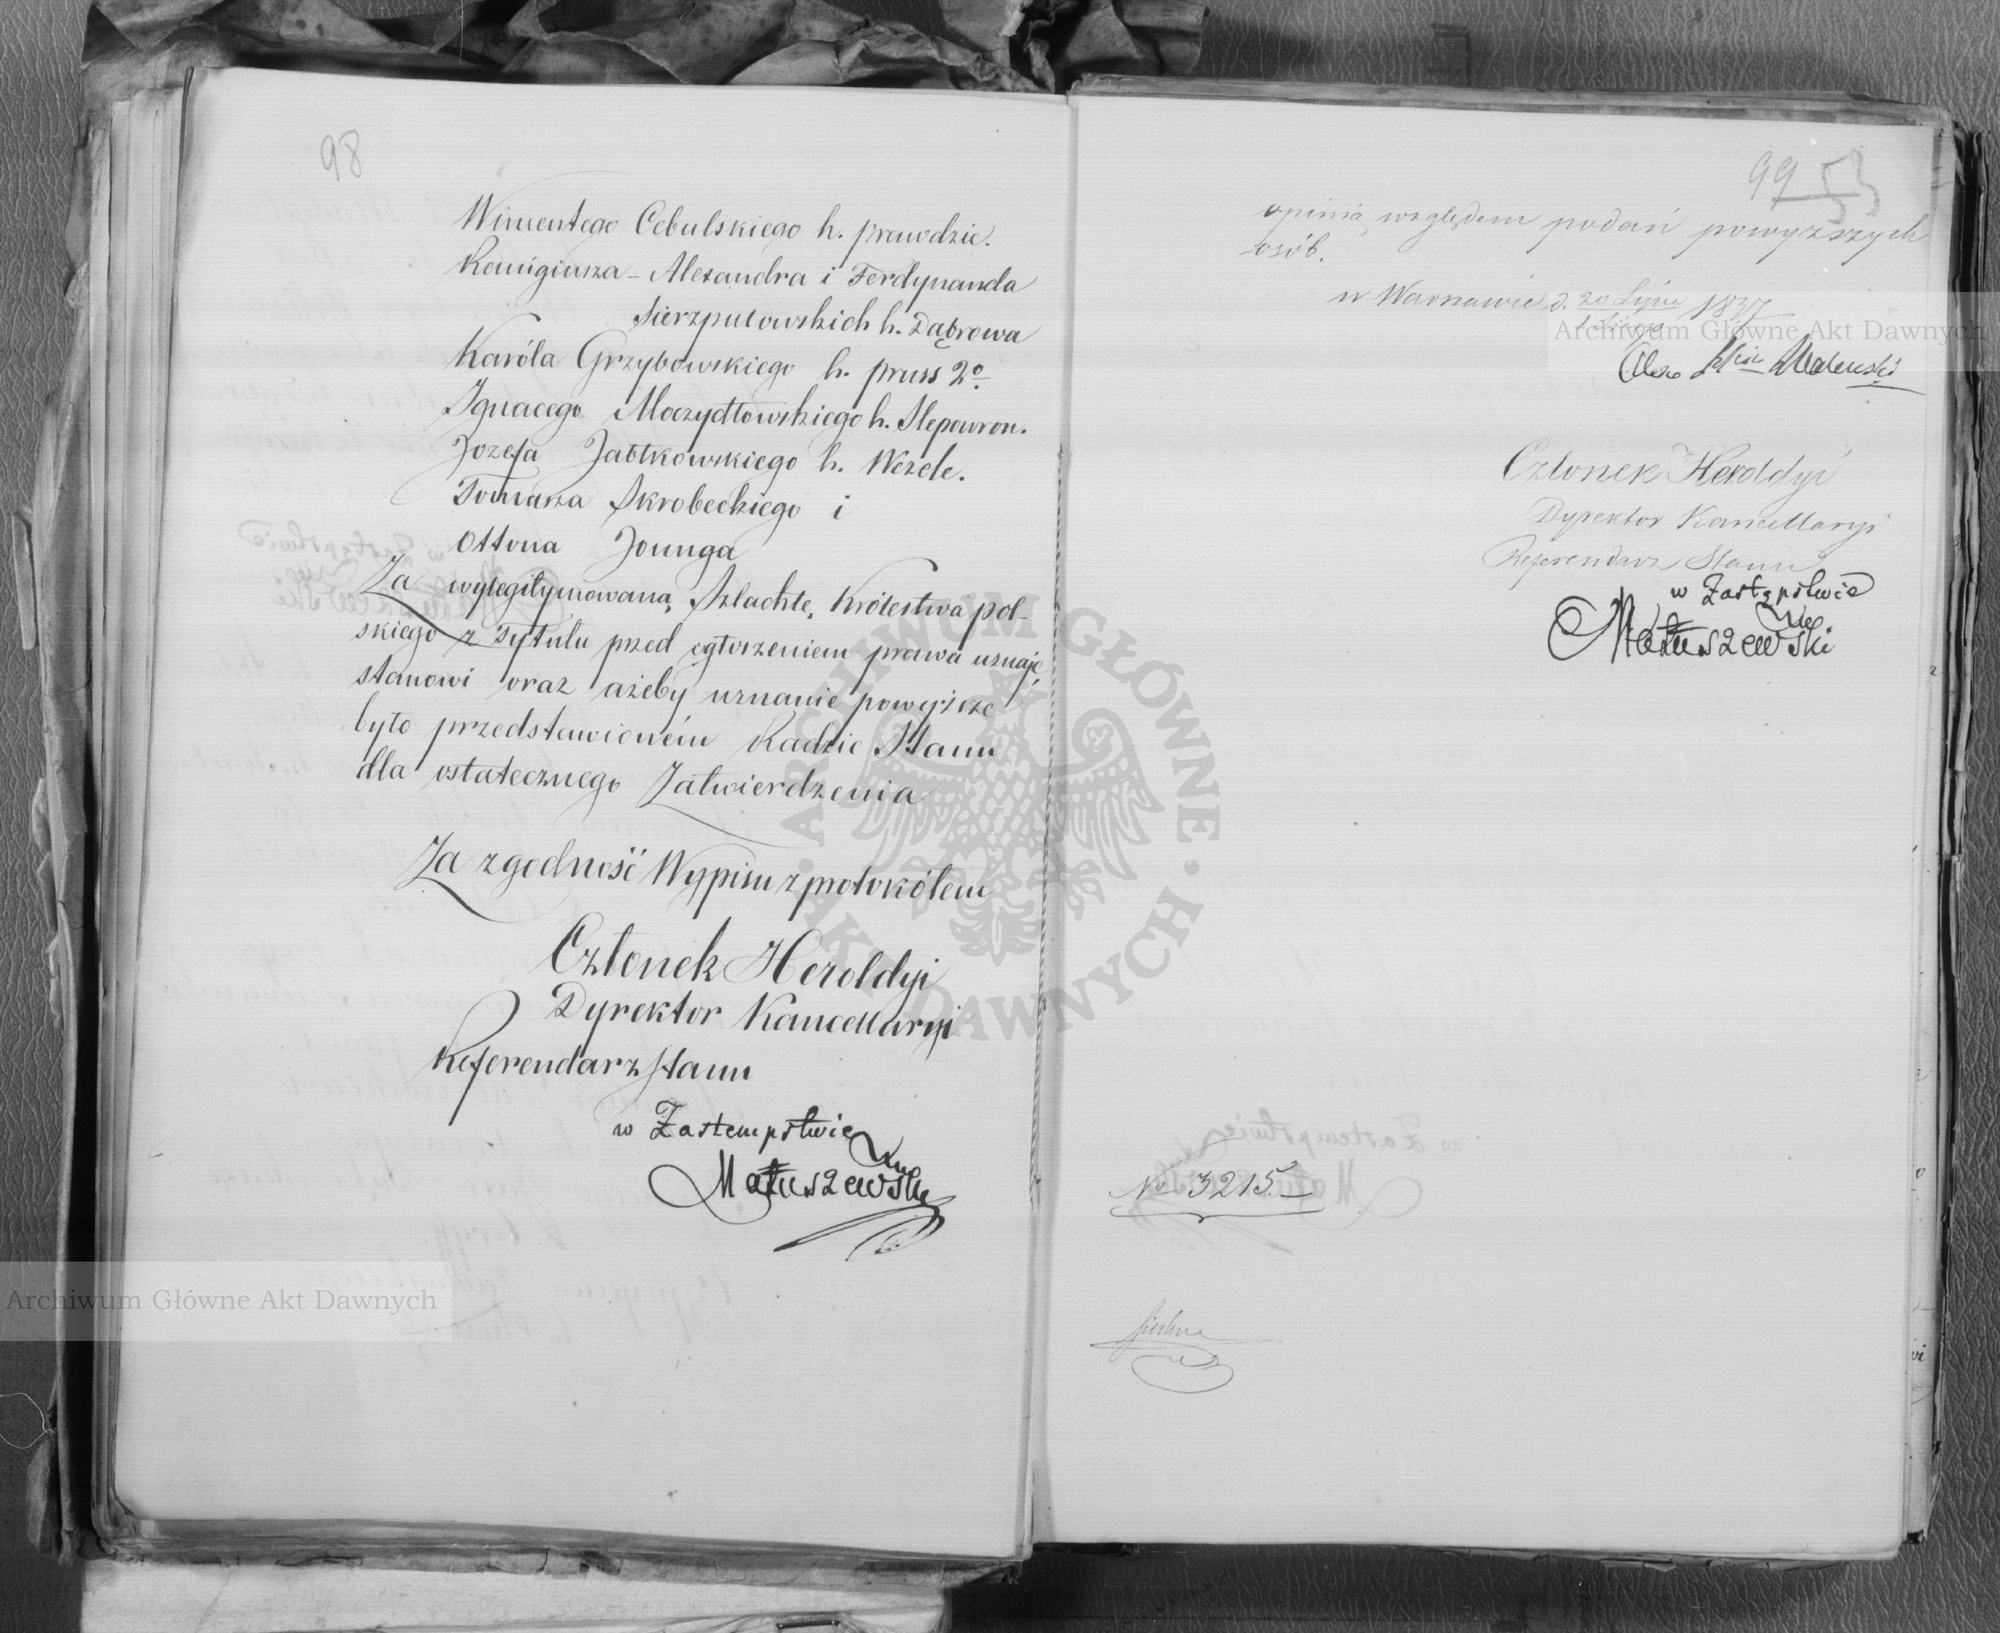 98
Wincentego Cebulskiego h. prawdzic.
Remigiusza – Alexandra i Ferdynanda
Sierzputowskich h. Dąbrowa
Karóla Grzybowskiego h. pruss 2o
Ignacego Moczydłowskiego h. Slepowron.
Jozefa Jabłkowskiego h. Wczele.
Tomasza Skrobeckiego i
Ottona Jounga
Za wylegitymowaną Szlachtę Królestwa pol-
skiego z Tytułu przed ogłoszeniem prawa uznaję
stanowi oraz ażeby uznanie powyższe
było przedstawioném Radzie Stanu
dla ostatecznego Zatwierdzenia
Za zgodność Wypisu z protokółem
Członek Heroldyi
Dyrektor Kancellaryi
Referendarz Stanu
w Zastempstwie
Matuszewski
99 53
opinią względem podań powyższych
osób.
w Warszawie d. 20 Lipca 1837
Członek Heroldyi
Dyrektor Kancellaryi
Referendarz Stanu
w Zastępstwie
Matuszewski
No 3215.
Archiwum Główne Akt Dawnych
Archiwum Główne Akt Dawnych
ARCHIWUM GŁÓWNE · AKT DAWNYCH ·